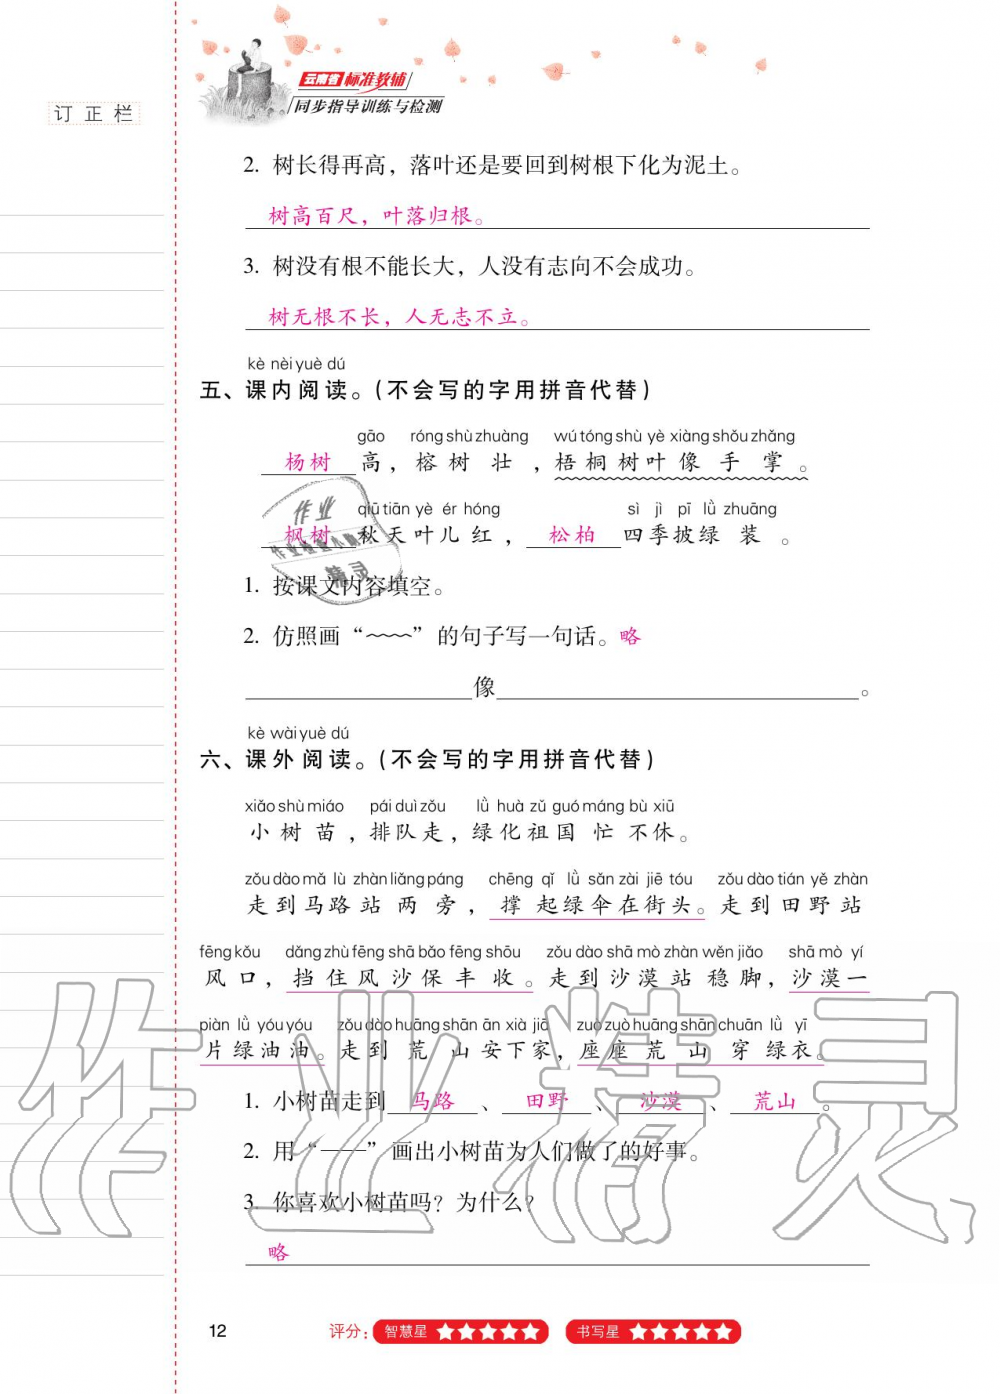 订正栏
云南省标准教辅
同步指导训练与检测
2. 树长得再高，落叶还是要回到树根下化为泥土。
树高百尺，叶落归根。
3. 树没有根不能长大，人没有志向不会成功。
树无根不长，人无志不立。
kè nèi yuè dú
五、课内阅读。（不会写的字用拼音代替）
gāo róng shù zhuàng wú tóng shù yè xiàng shǒu zhǎng
杨树高，榕树壮，梧桐树叶像手掌。
qiū tiān yè ér hóng sì jì pī lǜ zhuāng
枫树秋天叶儿红，松柏四季披绿装。
1. 按课文内容填空。
2. 仿照画“﹏﹏”的句子写一句话。略
像。
kè wài yuè dú
六、课外阅读。（不会写的字用拼音代替）
xiǎo shù miáo pái duì zǒu lǜ huà zǔ guó máng bù xiū
小树苗，排队走，绿化祖国忙不休。
zǒu dào mǎ lù zhàn liǎng páng chēng qǐ lǜ sǎn zài jiē tóu zǒu dào tián yě zhàn
走到马路站两旁，撑起绿伞在街头。走到田野站
fēng kǒu dǎng zhù fēng shā bǎo fēng shōu zǒu dào shā mò zhàn wěn jiǎo shā mò yí
风口，挡住风沙保丰收。走到沙漠站稳脚，沙漠一
piàn lǜ yóu yóu zǒu dào huāng shān ān xià jiā zuò zuò huāng shān chuān lǜ yī
片绿油油。走到荒山安下家，座座荒山穿绿衣。
1. 小树苗走到马路、田野、沙漠、荒山。
2. 用“——”画出小树苗为人们做了的好事。
3. 你喜欢小树苗吗？为什么？
略
12 评分：智慧星 ★★★★★ 书写星 ★★★★★
作业精灵
作业
作业检查小助手
精灵